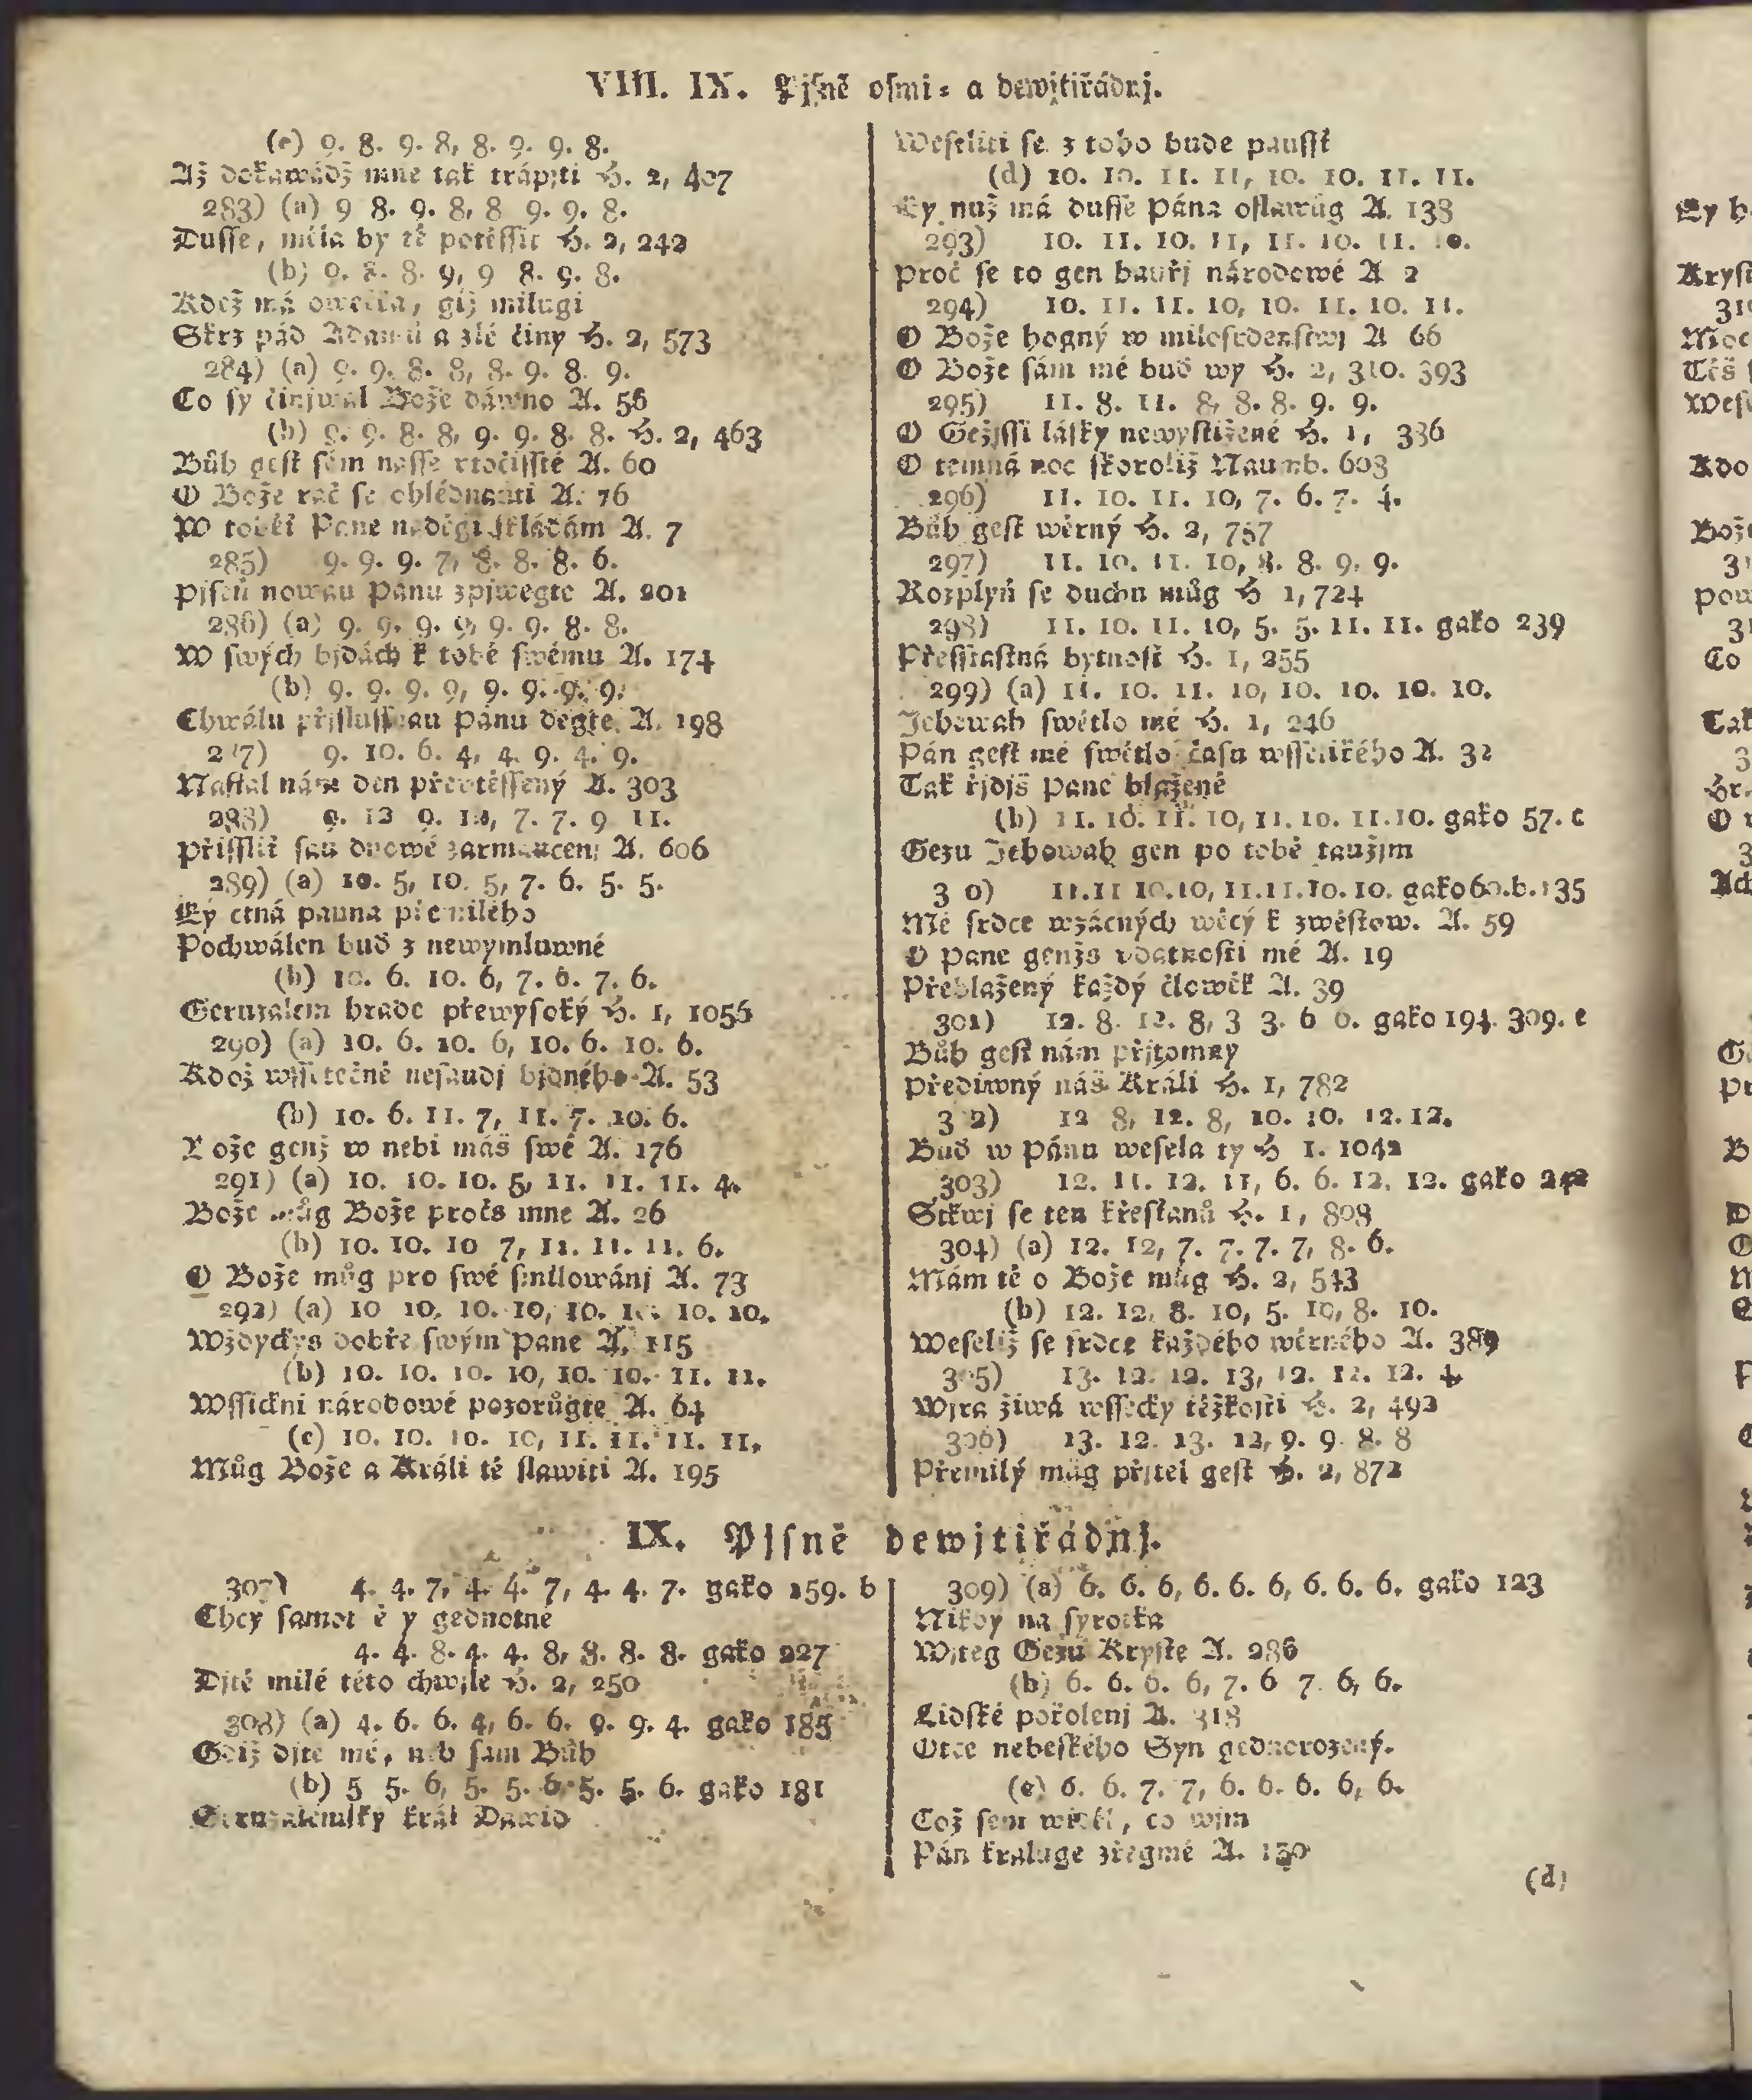 VIII. IX. Pjſně oſmi⸗ a dewjtiřádnj.
(c) 9. 8. 9. 8, 8. 9. 9. 8.
Až dokawádž mne tak trápiti H. 2, 407
283) (a) 9 8. 9. 8, 8 9. 9. 8.
Duſſe, měla by tě potěſſit H. 2, 242
(b) 9. 8. 8. 9, 9 8. 9. 8.
Kdež má owečka, gjž milugi
Skrz pád Adamů a zlé činy H. 2, 573
284) (a) 9. 9. 8. 8, 8. 9. 8. 9.
Co ſy činjwal Bože dáwno A. 56
(b) 9. 9. 8. 8, 9. 9. 8. 8. H. 2, 463
Bůh geſt ſám naſſe vtočiſſtě A. 60
O Bože rač ſe ohlédnauti A. 76
W tobětˇ Pane naděgi ſkládám A. 7
285) 9. 9. 9. 7, 8. 8. 8. 6.
Pjſeň nowau Pánu zpjwegte A. 201
286) (a) 9. 9. 9. 9, 9. 9. 8. 8.
W ſwých bjdách k tobě ſwému A. 174
(b) 9. 9. 9. 9, 9. 9. 9. 9.
Chwálu přjſluſſnau Pánu degte A. 198
287) 9. 10. 6. 4, 4. 9. 4. 9.
Naſtal nám den přeutěſſený A. 303
288) 9. 12 9. 12, 7. 7. 9 11.
Přiſſliť ſau dnowé zarmaucenj A. 606
289) (a) 10. 5, 10. 5, 7. 6. 5. 5.
Ey ctná panna přemilého
Pochwálen buď z newymluwné
(b) 10. 6. 10. 6, 7. 6. 7. 6.
Geruzalem hrade přewyſoký H. 1, 1056
290) (a) 10. 6. 10. 6, 10. 6. 10. 6.
Kdož wſſetečně neſaudj bjdného A. 53
(b) 10. 6. 11. 7, 11. 7. 10. 6.
Bože genž w nebi máš ſwé A. 176
291) (a) 10. 10. 10. 5, 11. 11. 11. 4.
Bože můg Bože pročs mne A. 26
(b) 10. 10. 10 7, 11. 11. 11. 6.
O Bože můg pro ſwé ſmilowánj A. 73
292) (a) 10 10. 10. 10, 10. 10. 10. 10.
Wždyckys dobře ſwým Pane A. 115
(b) 10. 10. 10. 10, 10. 10. 11. 11.
Wſſickni národowé pozorůgte A. 64
(c) 10. 10. 10. 10, 11. 11. 11. 11.
Můg Bože a Králi tě ſlawiti A. 195
Weſeliti ſe z toho bude pauſſť
(d) 10. 10. 11. 11, 10. 10. 11. 11.
Ey nuž má duſſe Pána oſlawůg A. 138
293) 10. 11. 10. 11, 11. 10. 11. 10.
Proč ſe to gen bauřj národowé A 2
294) 10. 11. 11. 10, 10. 11. 10. 11.
O Bože hogný w miloſrdenſtwj A 66
O Bože ſám mé buď wy H. 2, 310. 393
295) 11. 8. 11. 8, 8. 8. 9. 9.
O Gežjſſi láſky newyſtižené H. 1, 336
O temná noc ſkoroliž Naumb. 603
296) 11. 10. 11. 10, 7. 6. 7. 4.
Bůh geſt wěrný H. 2, 757
297) 11. 10. 11. 10, 8. 8. 9. 9.
Rozplyň ſe duchu můg H 1, 724
298) 11. 10. 11. 10, 5. 5. 11. 11. gako 239
Přeſſťaſtná bytnoſt H. 1, 255
299) (a) 11. 10. 11. 10, 10. 10. 10. 10.
Jehowah ſwětlo mé H. 1, 246
Pán geſt mé ſwětlo čaſu wſſelikého A. 32
Tak řjdjš Pane blaženě
(b) 11. 10. 11. 10, 11. 10. 11. 10. gako 57. c
Gezu Jehowah gen po tobě taužjm
3 0) 11. 11 10. 10, 11. 11. 10. 10. gako 60. b. 135
Mé ſrdce wzácných wěcý k zwěſtow. A. 59
O Pane genžs vdatnoſti mé A. 19
Přeblažený každý člowěk A. 39
301) 12. 8. 12. 8, 3 3. 6 6. gako 194. 309. e
Bůh geſt nám přjtomný
Předjwný náš Králi H. 1, 782
3 2) 12 8, 12. 8, 10. 10. 12. 12.
Buď w Pánu weſela ty H 1. 1042
303) 12. 11. 12. 11, 6. 6. 12. 12. gako 242
Stkwj ſe ten křeſťanů H. 1, 808
304) (a) 12. 12, 7. 7. 7. 7, 8. 6.
Mám tě o Bože můg H. 2, 543
(b) 12. 12, 8. 10, 5. 10, 8. 10.
Weſeliž ſe ſrdce každého wěrného A. 389
305) 13. 12. 12. 13, 12. 12. 12. 4.
Wjra žiwá wſſecky těžkoſti H. 2, 492
306) 13. 12. 13. 12, 9. 9. 8. 8
Přemilý můg přjtel geſt H. 2, 872
IX. Pjſně dewjtiřádnj.
307) 4. 4. 7, 4. 4. 7, 4. 4. 7. gako 159. b
Chcy ſamot ě y gednotně
4. 4. 8. 4. 4. 8, 8. 8. 8. gako 227
Djtě milé této chwjle H. 2, 250
308) (a) 4. 6. 6. 4, 6. 6. 9. 9. 4. gako 185
Gdiž djtě mé, neb ſám Bůh
(b) 5 5. 6, 5. 5. 6. 5. 5. 6. gako 181
Geruzalemſký král Dawid
309) (a) 6. 6. 6, 6. 6. 6, 6. 6. 6. gako 123
Nikdy na ſyrotka
Wjteg Gezu Kryſte A. 286
(b) 6. 6. 6. 6, 7. 6 7. 6, 6.
Lidſké pokolenj A. 318
Otce nebeſkého Syn gednorozený.
(c) 6. 6. 7. 7, 6. 6. 6. 6, 6.
Což ſem widěl, co wjm
Pán kraluge zřegmě A. 130
(d)